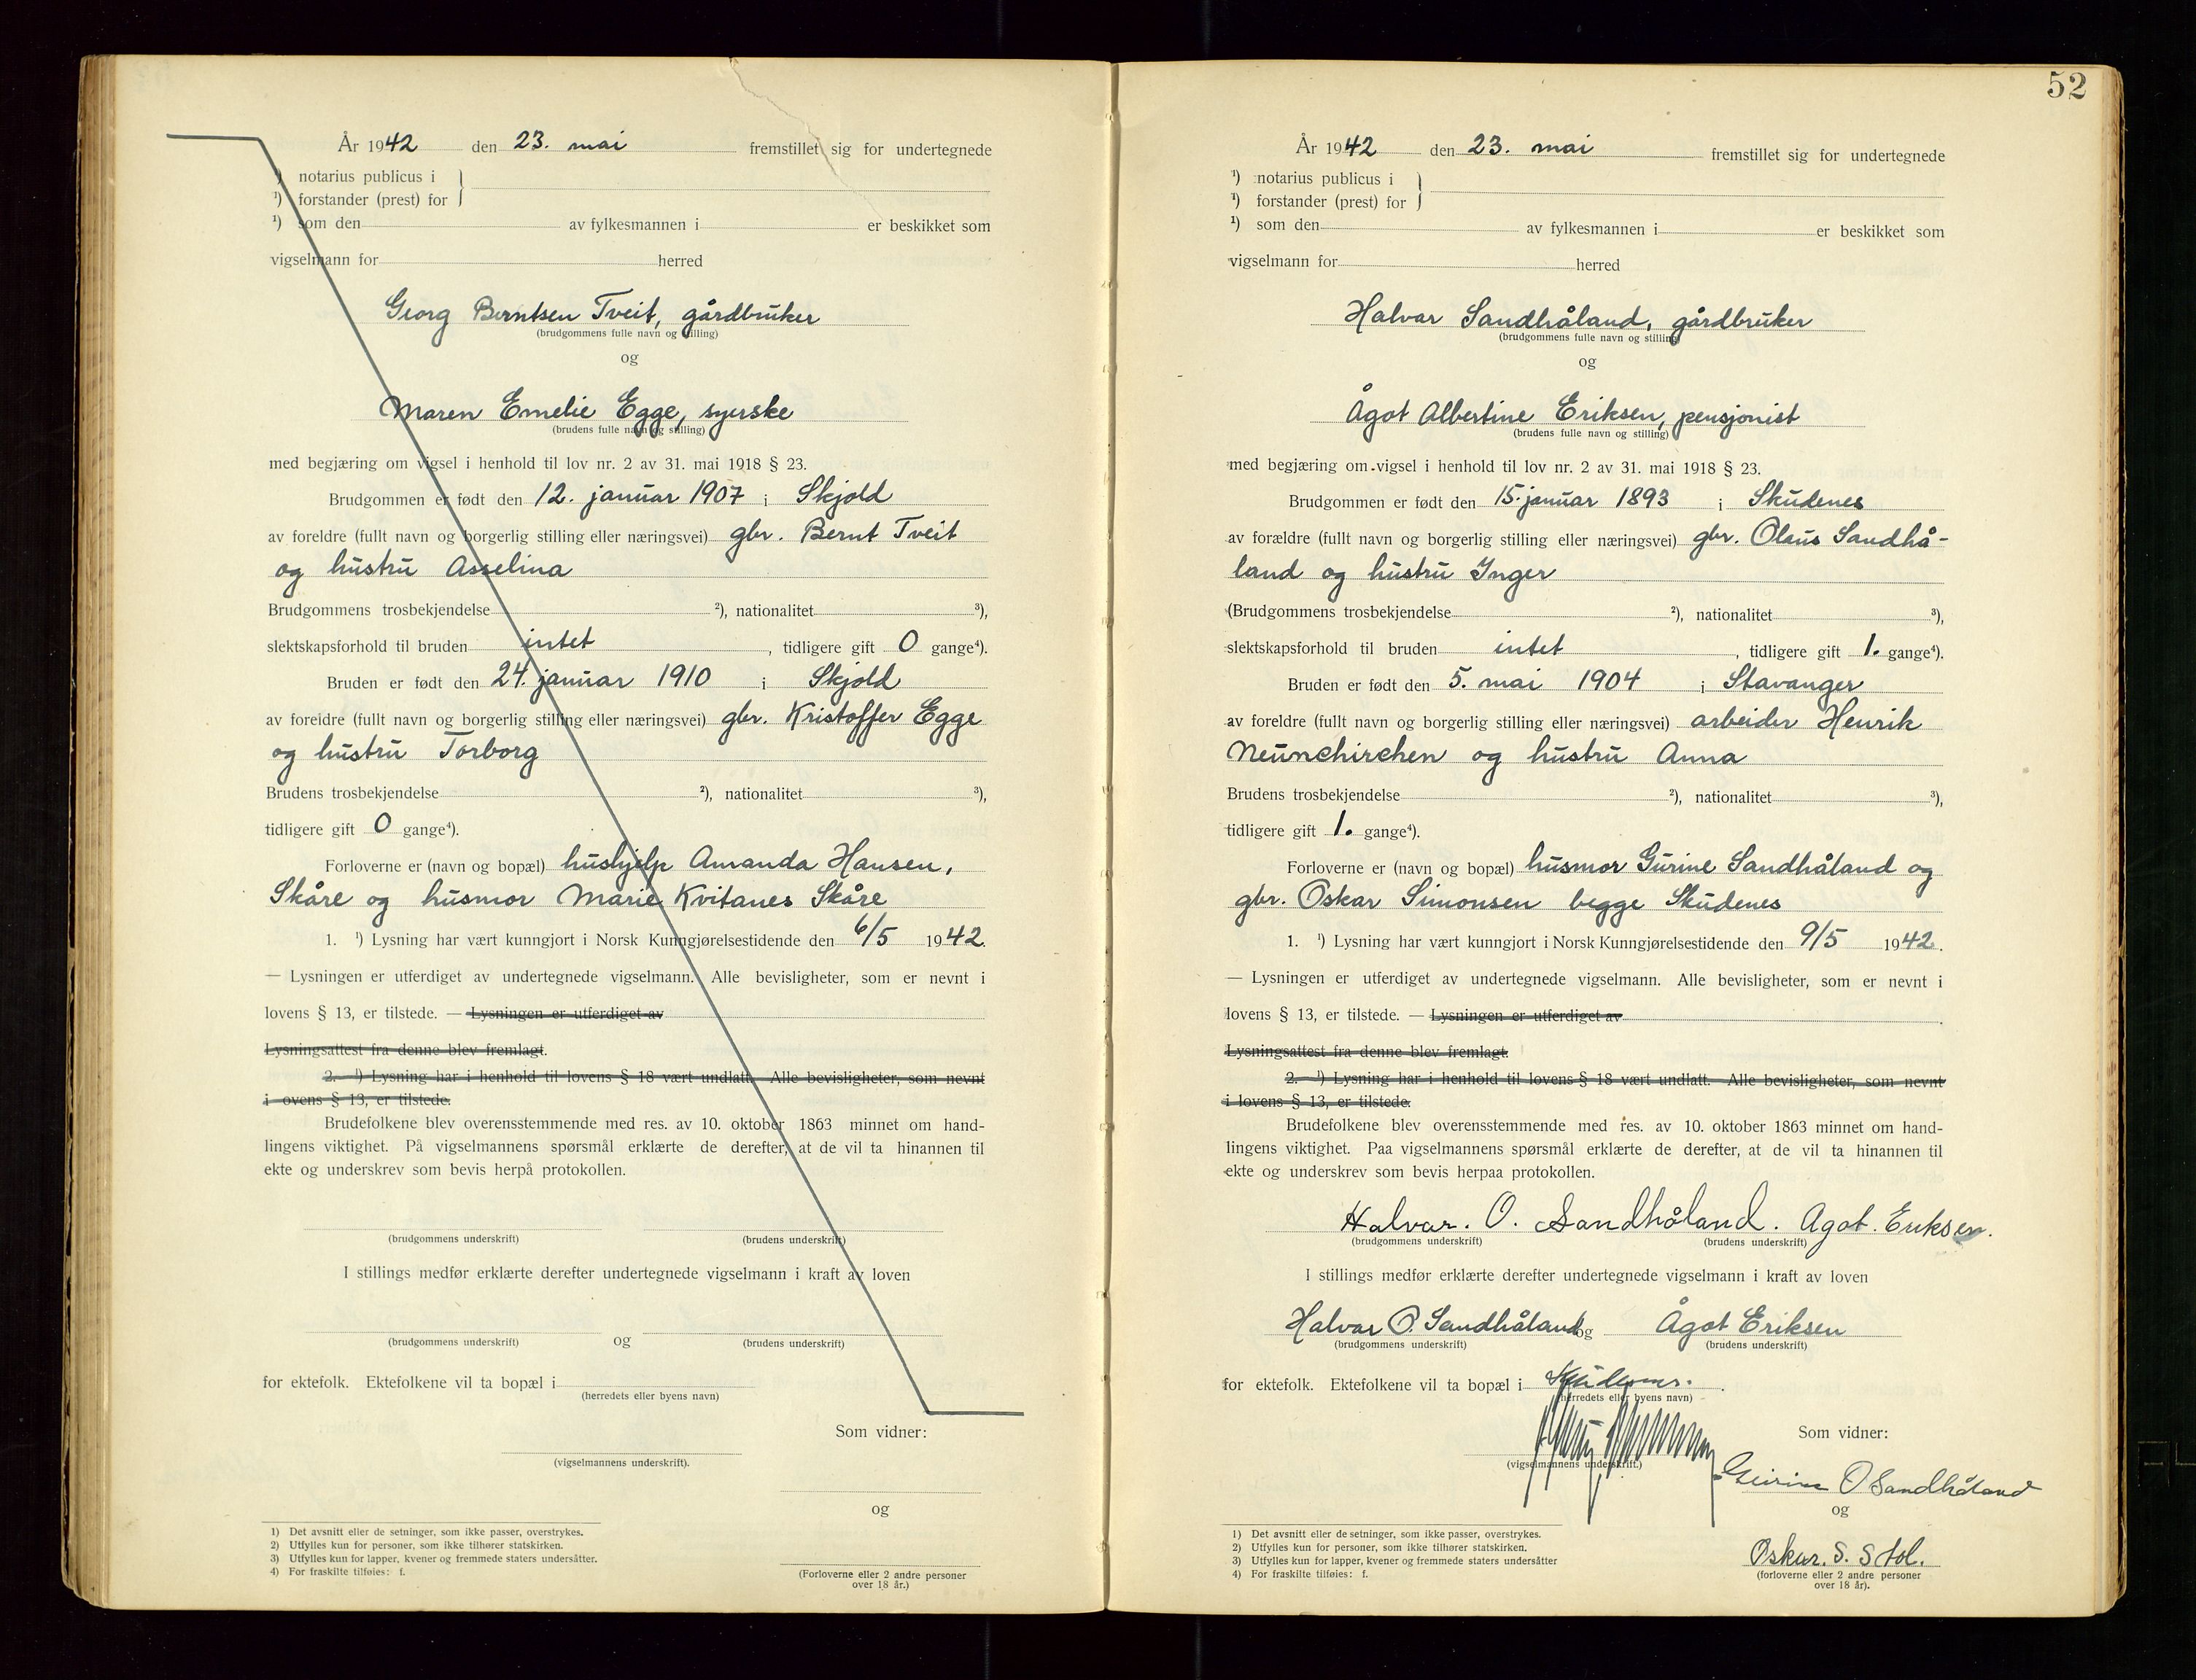 År 1942 den 23. mai fremstillet sig for undertegnede
¹) notarius publicus i }
¹) forstander (prest) for
¹) som den av fylkesmannen i er beskikket som
vigselmann for herred
Georg Berntsen Tveit, gårdbruker
(brudgommens fulle navn og stilling)
og
Maren Emelie Egge, syerske
(brudens fulle navn og stilling)
med begjæring om vigsel i henhold til lov nr. 2 av 31. mai 1918 § 23.
Brudgommen er født den 12. januar 1907 i Skjold
av foreldre (fullt navn og borgerlig stilling eller næringsvei) gbr. Bernt Tveit
og hustru Asselina
Brudgommens trosbekjendelse ²), nationalitet ³),
slektskapsforhold til bruden intet, tidligere gift 0 gange⁴).
Bruden er født den 24. januar 1910 i Skjold
av foreldre (fullt navn og borgerlig stilling eller næringsvei) gbr. Kristoffer Egge
og hustru Torborg
Brudens trosbekjendelse ²), nationalitet ³),
tidligere gift 0 gange⁴).
Forloverne er (navn og bopæl) hushjelp Amanda Hansen,
Skåre og husmor Marie Kvitanes Skåre
1. ¹) Lysning har vært kunngjort i Norsk Kunngjørelsestidende den 6/5 1942.
— Lysningen er utferdiget av undertegnede vigselmann. Alle bevisligheter, som er nevnt i
lovens § 13, er tilstede. — Lysningen er utferdiget av
Lysningsattest fra denne blev fremlagt.
2. ¹) Lysning har i henhold til lovens § 18 vært undlatt. Alle bevisligheter, som nevnt
i ovens § 13, er tilstede.
Brudefolkene blev overensstemmende med res. av 10. oktober 1863 minnet om hand-
lingens viktighet. På vigselmannens spørsmål erklærte de derefter, at de vil ta hinannen til
ekte og underskrev som bevis herpå protokollen.
(brudgommens underskrift) (brudens underskrift)
I stillings medfør erklærte derefter undertegnede vigselmann i kraft av loven
og
(brudgommens underskrift) (brudens underskrift)
for ektefolk. Ektefolkene vil ta bopæl i
(herredets eller byens navn)
Som vidner:
(vigselmannens underskrift).
og
1) Det avsnitt eller de setninger, som ikke passer, overstrykes.
2) Utfylles kun for personer, som ikke tilhører statskirken.
3) Utfylles kun for lapper, kvener og fremmede staters undersåtter.
4) For fraskilte tilføies: f.
(Forloverne eller 2 andre personer
over 18 år.)
52
År 1942 den 23. mai fremstillet sig for undertegnede
¹) notarius publicus i }
¹) forstander (prest) for
¹) som den av fylkesmannen i er beskikket som
vigselmann for herred
Halvar Sandhåland, gårdbruker
(brudgommens fulle navn og stilling)
og
Ågot Albertine Eriksen, pensjonist
(brudens fulle navn og stilling)
med begjæring om vigsel i henhold til lov nr. 2 av 31. mai 1918 § 23.
Brudgommen er født den 15. januar 1893 i Skudenes
av forældre (fullt navn og borgerlig stilling eller næringsvei) gbr. Olaus Sandhå-
land og hustru Inger
(Brudgommens trosbekjendelse ²), nationalitet ³),
slektskapsforhold til bruden intet, tidligere gift 1. gange⁴).
Bruden er født den 5. mai 1904 i Stavanger
av foreldre (fullt navn og borgerlig stilling eller næringsvei) arbeider Henrik
Neunchirchen og hustru Anna
Brudens trosbekjendelse ²), nationalitet ³),
tidligere gift 1. gange⁴).
Forloverne er (navn og bopæl) husmor Gurine Sandhåland og
gbr. Oskar Simonsen begge Skudenes
1. ¹) Lysning har vært kunngjort i Norsk Kunngjørelsestidende den 9/5 1942.
— Lysningen er utferdiget av undertegnede vigselmann. Alle bevisligheter, som er nevnt i
lovens § 13, er tilstede. — Lysningen er utferdiget av
Lysningsattest fra denne blev fremlagt.
2. ¹) Lysning har i henhold til lovens § 18 vært undlatt. Alle bevisligheter, som nevnt
i lovens § 13, er tilstede.
Brudefolkene blev overensstemmende med res. av 10. oktober 1863 minnet om hand-
lingens viktighet. Paa vigselmannens spørsmål erklærte de derefter, at de vil ta hinannen til
ekte og underskrev som bevis herpaa protokollen.
Halvar. O. Sandhåland. Agot. Eriksen.
(brudgommens underskrift) (brudens underskrift)
I stillings medfør erklærte derefter undertegnede vigselmann i kraft av loven
Halvar O. Sandhåland og Ågot Eriksen
(brudgommens underskrift) (brudens underskrift)
for ektefolk. Ektefolkene vil ta bopæl i Skudenes.
(herredets eller byens navn)
Som vidner:
(vigselmannens underskrift.)
Gurine O Sandhåland
og
Oskar. S. Stol.
1) Det avsnitt eller de setninger, som ikke passer, overstrykes.
2) Utfylles kun for personer, som ikke tilhører statskirken.
3) Utfylles kun for lapper, kvener og fremmede staters undersåtter
4) For fraskilte tilføies: f.
(forloverne eller 2 andre personer
over 18 år).